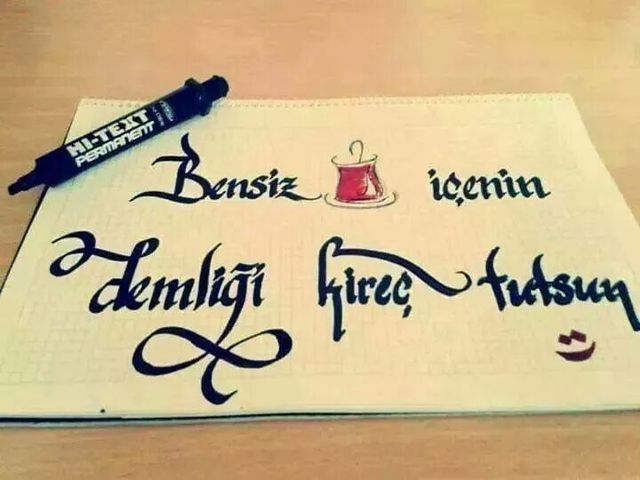 HI-TEXT
PERMANENT
Bensiz içenin
demliği kireç tutsun